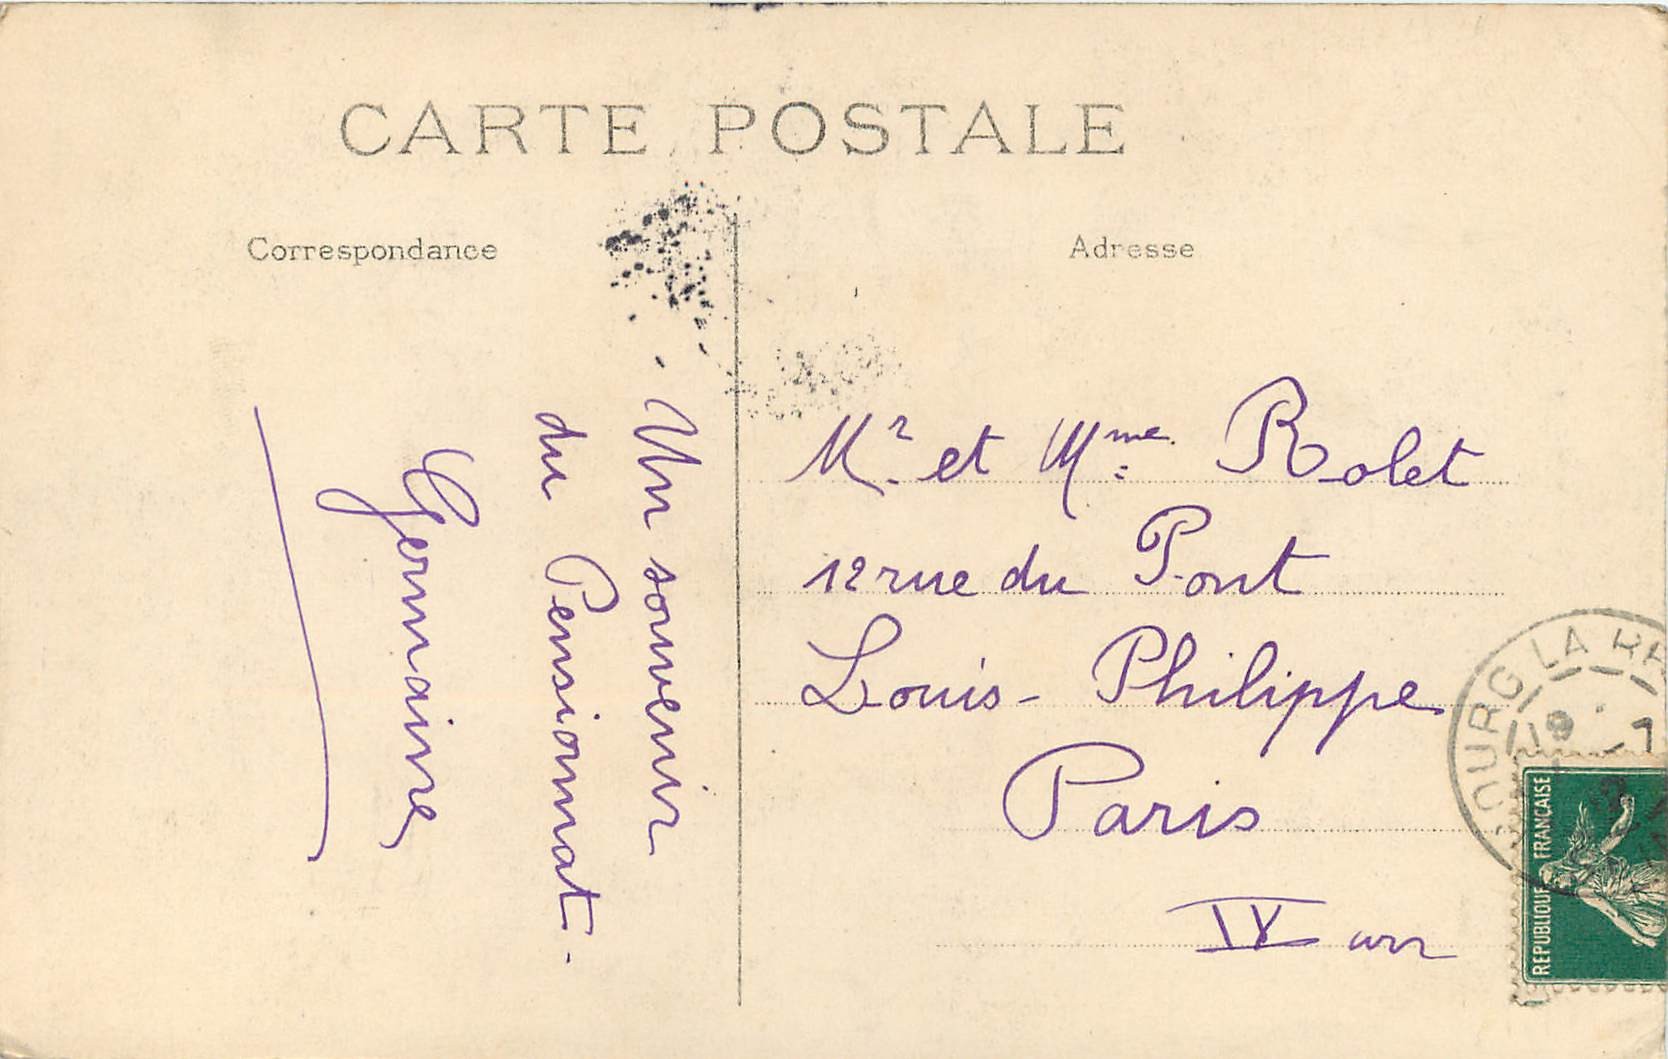 CARTE POSTALE
Correspondance
Adresse
Un souvenir
du Pensionnat.
Germaine
Mr. et Mme. Rolet
12 rue du Pont
Louis-Philippe
Paris
IV arr
BOURG LA RE
19
7
REPUBLIQUE FRANÇAISE